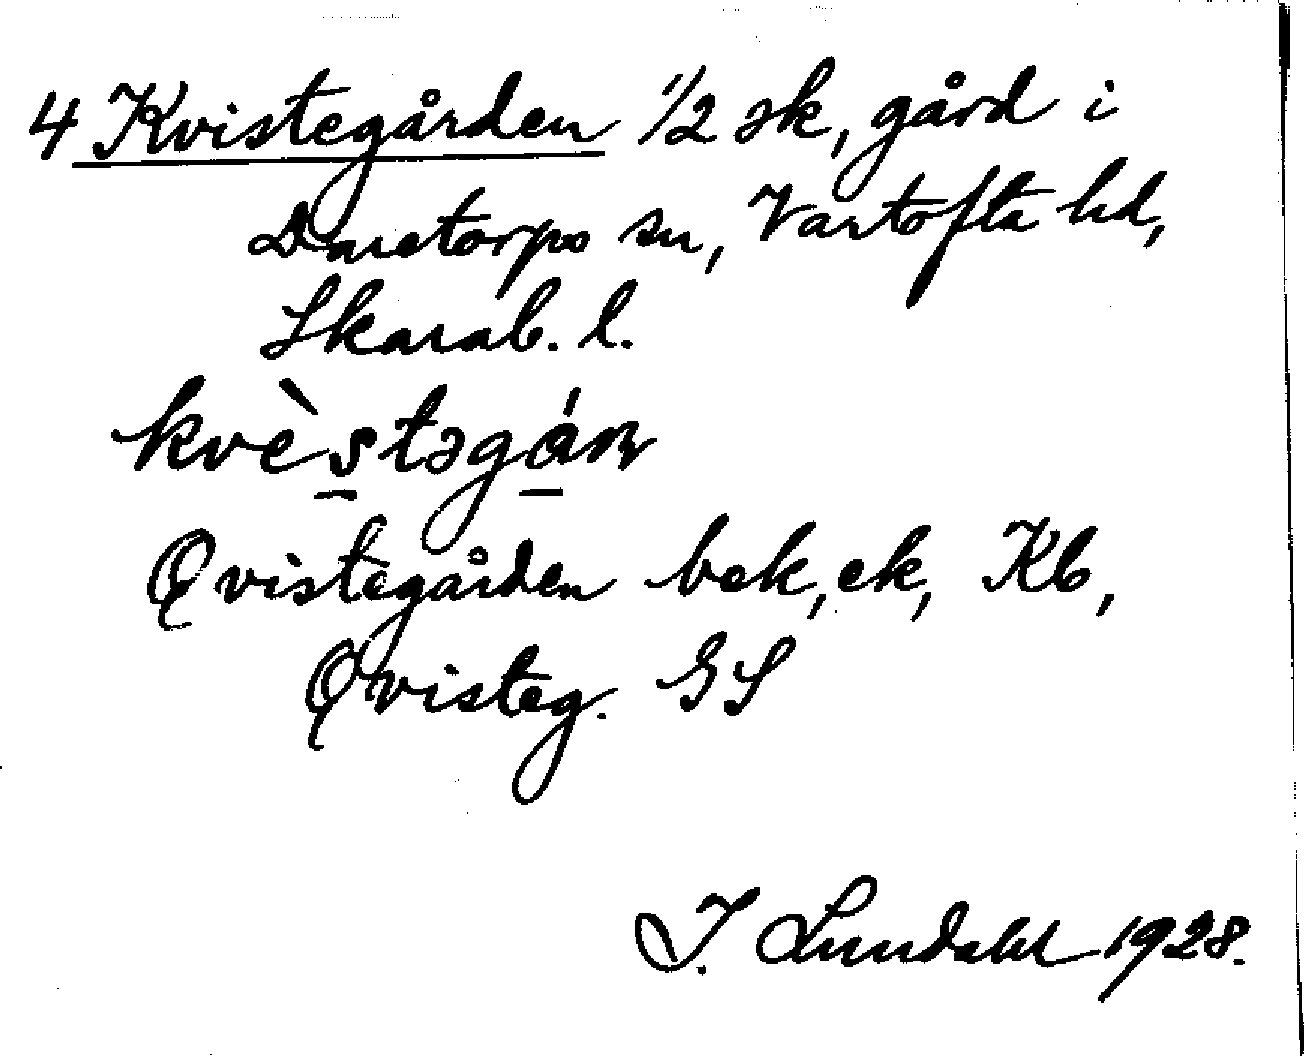 4 Kvistegården 1/2 sk, gård i
Daretorps sn, Vartofta hd,
Skarab. l.
kvèstəgán
Qvistegården bek, ek, Kb,
Qvisteg. GS
I. Lundahl 1928.